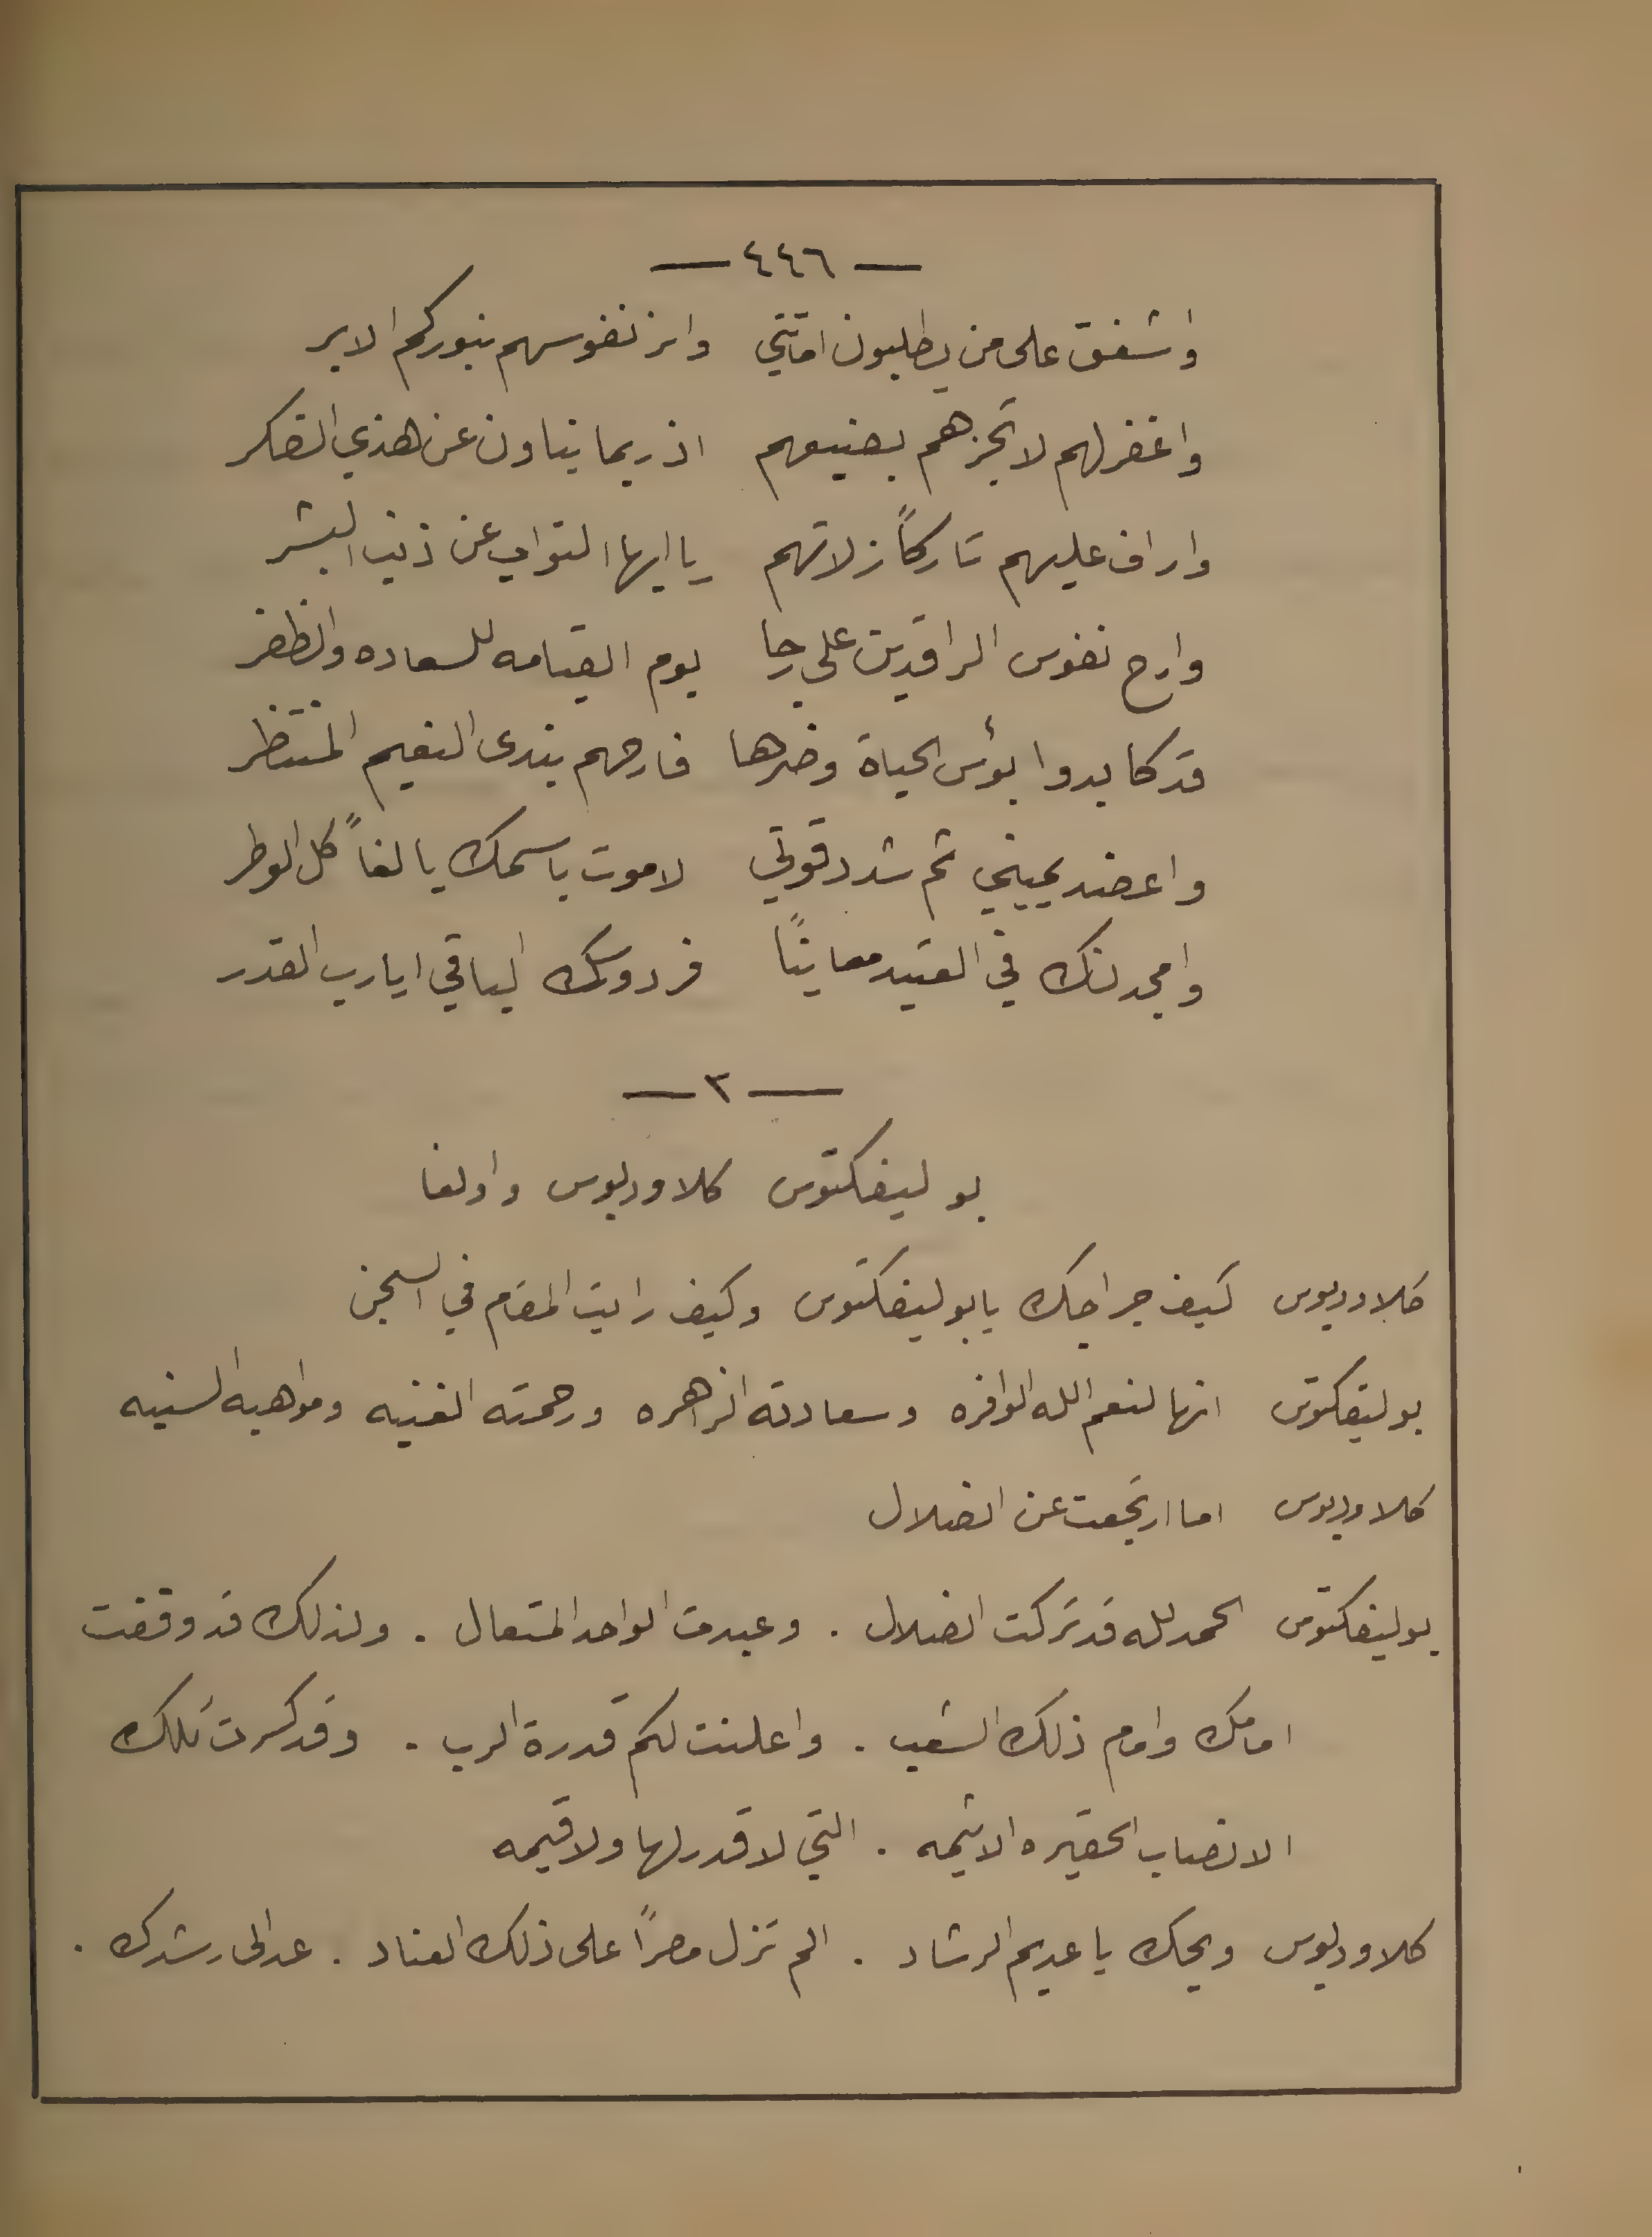 — ٤٤٦ —
واشفق على من يطلبون اماتتي وانر نفوسهم بنوركم الابر
واغفر لهم لا تجزهم بصنيعهم اذ ربما يناون عن هذي الفكر
واراف عليهم تاركاً زلاتهم يا ايها التواب عن ذنب البشر
وارح نفوس الراقدين على رجا يوم القيامه للسعاده والظفر
قد كابدوا بؤس الحياة وضرها فارحهم بندى النعيم المنتظر
واعضد يميني ثم شدد قوتي لاموت باسمك بالغاً كل الوطر
وامجدنك في القيد معاينًا فردوسك الباقي ايا رب القدر
— ٣ —
بوليفكتوس كلاوديوس واولغا
كلاوديوس كيف جراحك يا بوليفكتوس وكيف رايت المقام في السجن
بوليفكتوس انها لنعم الله الوافره وسعادته الزاهره ورحمته الغنيه ومواهبه السنيه
كلاوديوس اما ارتجعت عن الضلال
بوليفكتوس الحمد لله قد تركت الضلال . وعبدت الواحد المتعال . ولذلك قد وقفت
امامك وامام ذلك الشعب . واعلنت لكم قدرة الرب . وقد كسرت تلك
الانصاب الحقيره الاثيمه . التي لا قدر لها ولا قيمه
كلاوديوس ويحك يا عديم الرشاد . الم تزل مصراً على ذلك العناد . عد الى رشدك .